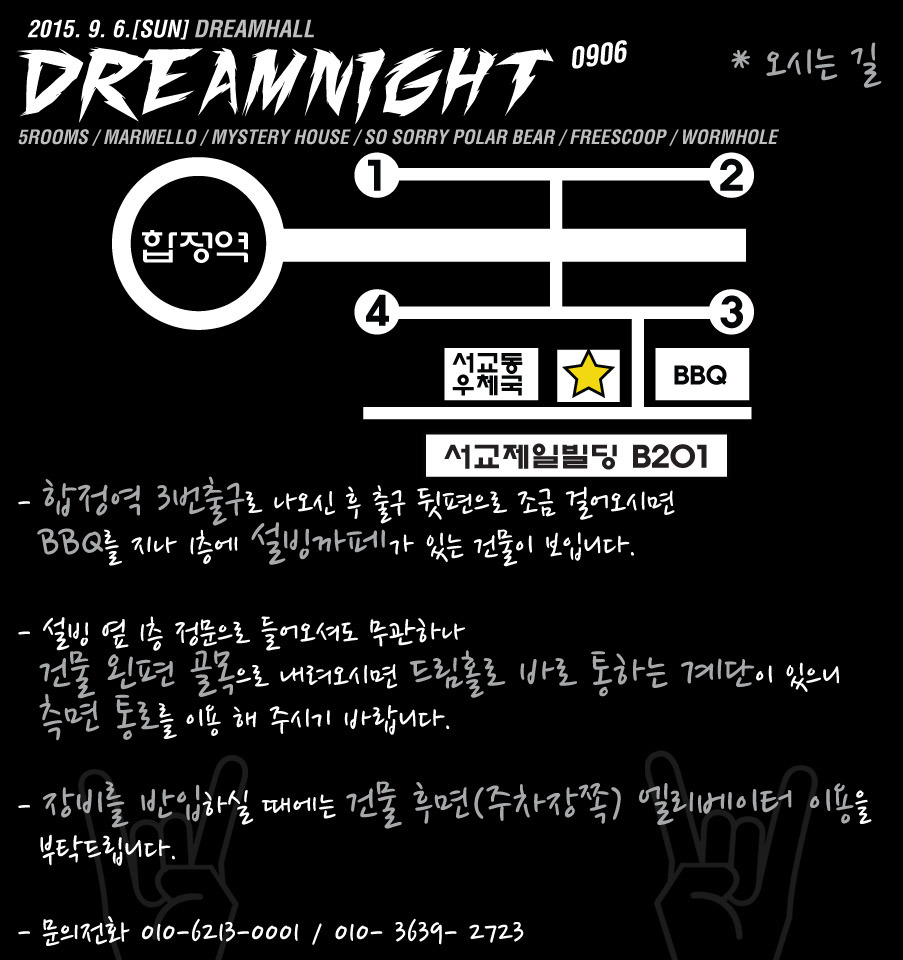 2015. 9. 6.[SUN] DREAMHALL
DREAMNIGHT 0906
* 오시는 길
5ROOMS / MARMELLO / MYSTERY HOUSE / SO SORRY POLAR BEAR / FREESCOOP / WORMHOLE
1
2
합정역
4
3
서교동
우체국
BBQ
서교제일빌딩 B201
- 합정역 3번출구로 나오신 후 출구 뒷편으로 조금 걸어오시면
BBQ를 지나 1층에 설빙까페가 있는 건물이 보입니다.
- 설빙 옆 1층 정문으로 들어오셔도 무관하나
건물 왼편 골목으로 내려오시면 드림홀로 바로 통하는 계단이 있으니
측면 통로를 이용 해 주시기 바랍니다.
- 장비를 반입하실 때에는 건물 후면(주차장쪽) 엘리베이터 이용을
부탁드립니다.
- 문의전화 010-6213-0001 / 010- 3639- 2723